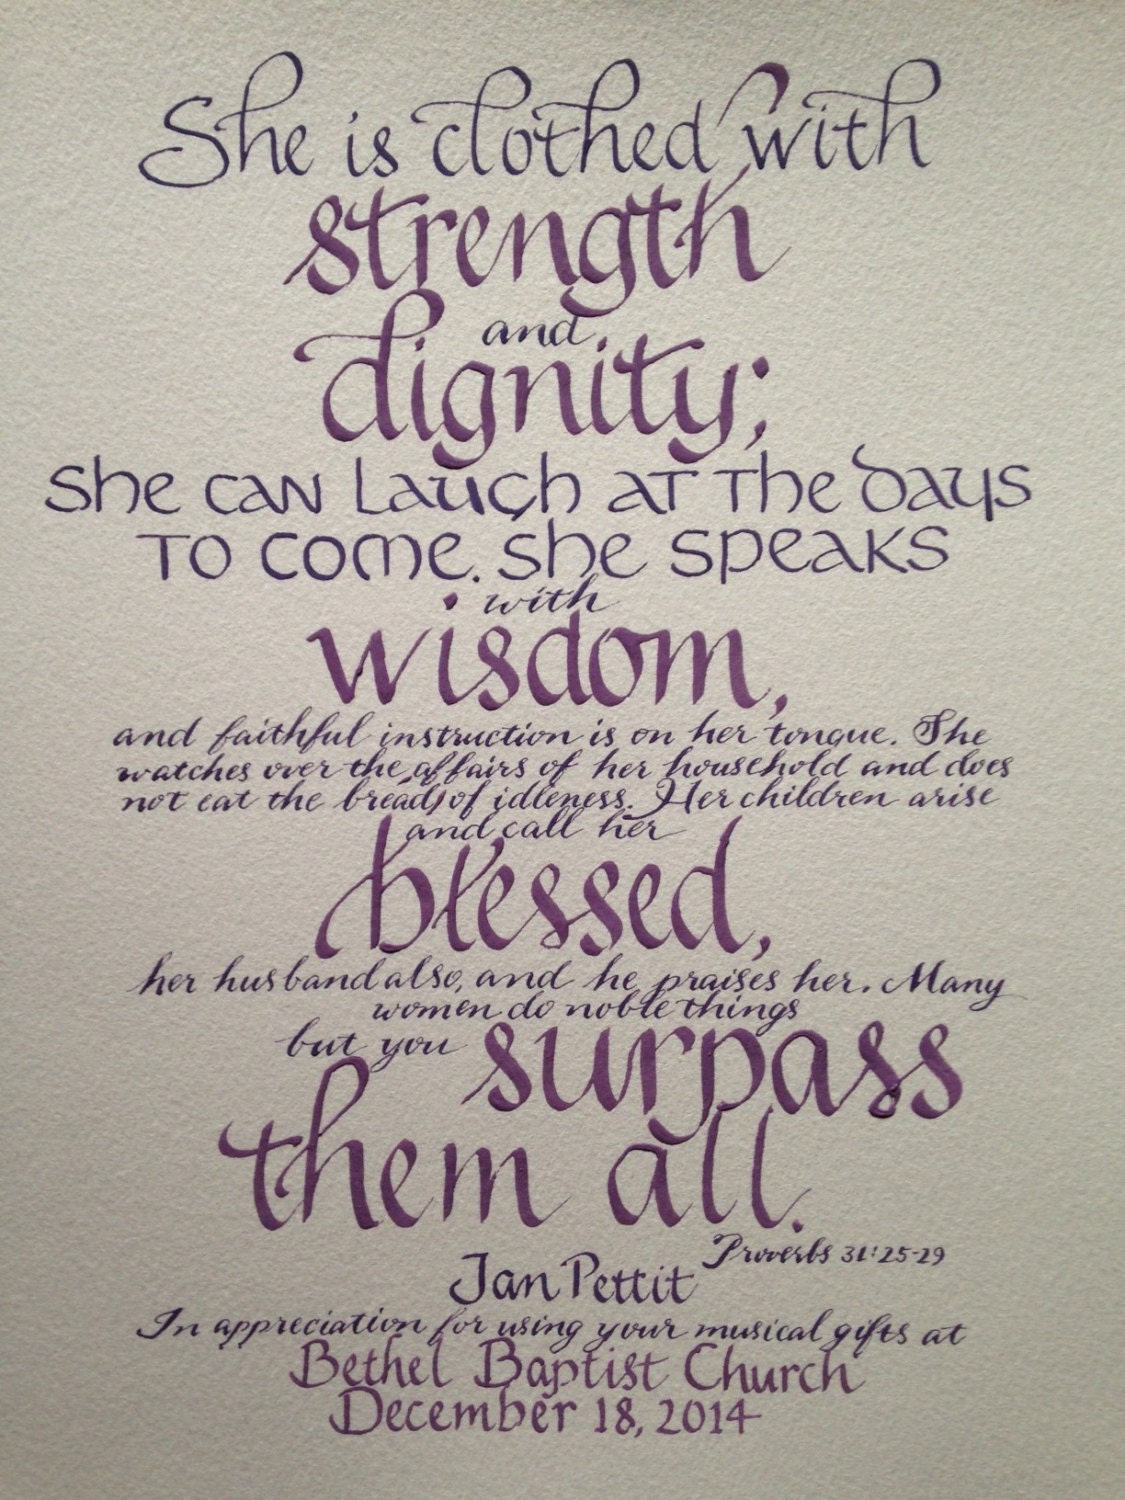 She is clothed with
strength
and
dignity;
she can laugh at the days
to come. she speaks
with
wisdom,
and faithful instruction is on her tongue. She
watches over the affairs of her household and does
not eat the bread of idleness. Her children arise
and call her
blessed,
her husband also, and he praises her. Many
women do noble things
but you surpass
them all.
Proverbs 31:25-29
Jan Pettit
In appreciation for using your musical gifts at
Bethel Baptist Church
December 18, 2014